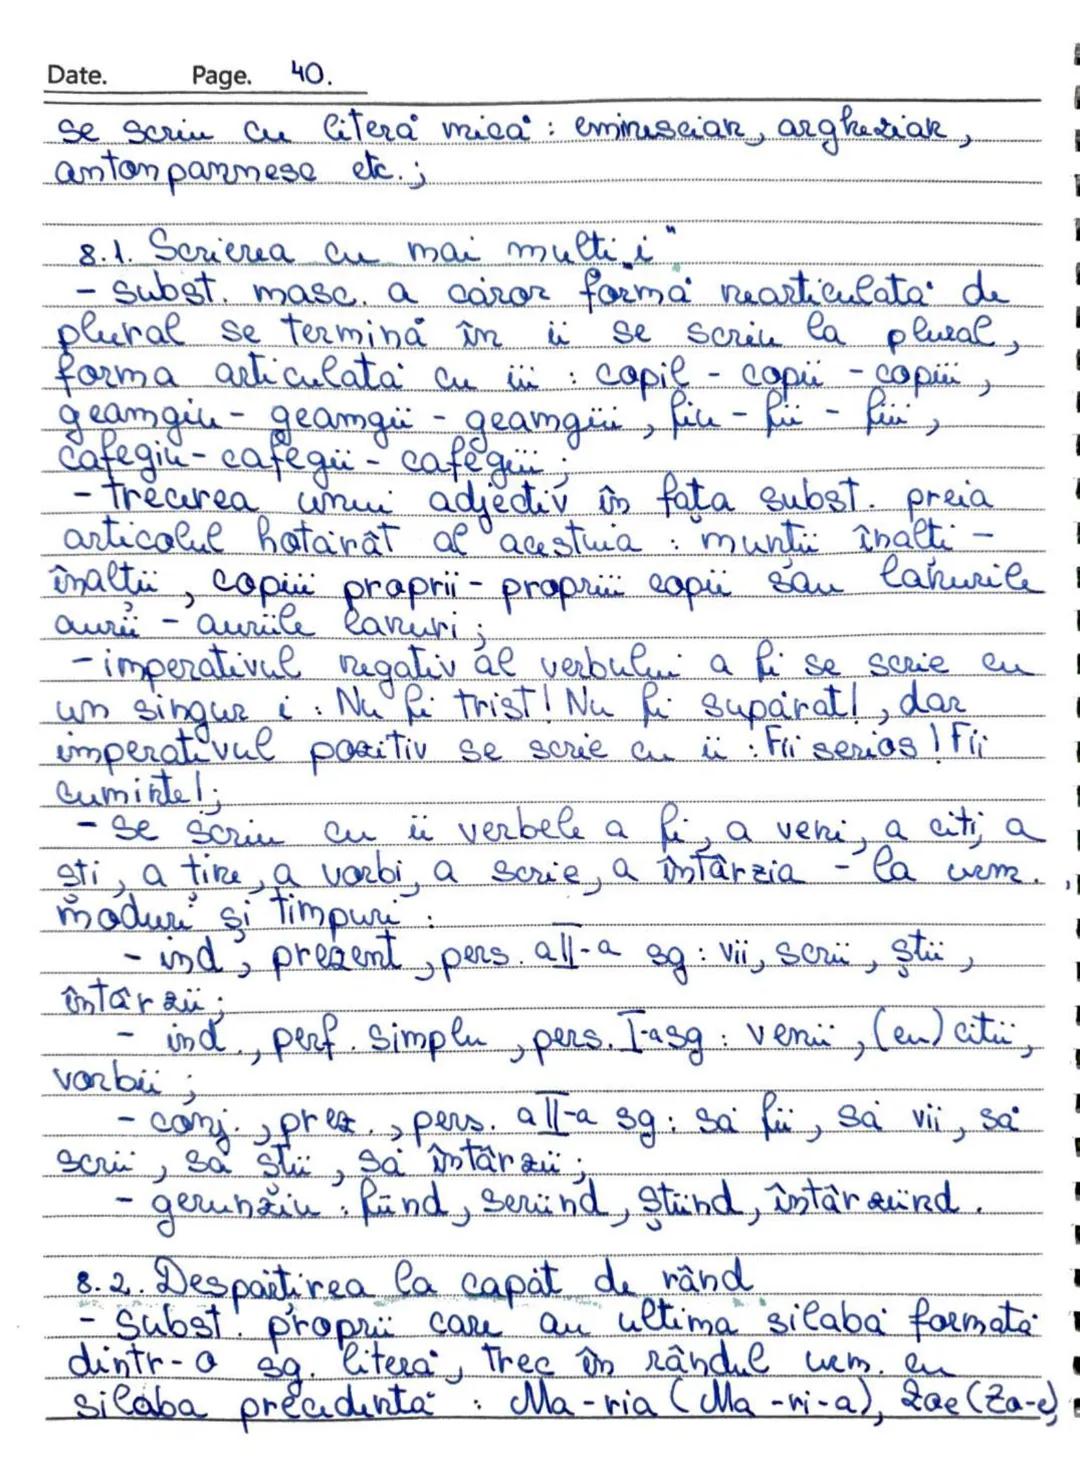 Date. Page. 40.
se scriu cu literă mică: eminescian, arghezian,
antonpannesc etc.;
8.1. Scrierea cu mai mulți „i"
- subst. masc. a căror formă nearticulată de
plural se termină în ii se scriu la plural,
forma articulată cu iii : copil - copii - copiii,
geamgiu - geamgii - geamgiii, fiu - fii - fiii,
cafegiu - cafegii - cafegiii ;
- trecerea unui adjectiv în fața subst. preia
articolul hotărât al acestuia : munții înalți -
înalții, copiii proprii - propriii copii sau lanurile
aurii - auriile lanuri ;
- imperativul negativ al verbului a fi se scrie cu
un singur i : Nu fi trist! Nu fi supărat!, dar
imperativul pozitiv se scrie cu ii : Fii serios! Fii
cuminte!;
- se scriu cu ii verbele a fi, a veni, a citi, a
ști, a ține, a vorbi, a scrie, a întârzia - la urm.
moduri și timpuri :
- ind, prezent, pers. a II-a sg : vii, scrii, știi,
întârzii ;
- ind., perf. simplu, pers. I-a sg : venii, (eu) citii,
vorbii ;
- conj., prez., pers. a II-a sg : să fii, să vii, să
scrii, să știi, să întârzii ;
- gerunziu : fiind, scriind, știind, întârziind.
8.2. Despărțirea la capăt de rând
- Subst. proprii care au ultima silabă formată
dintr-o sg. literă, trec în rândul urm. cu
silaba precedentă : Ma-ria (Ma-ri-a), Zoe (Zo-e),